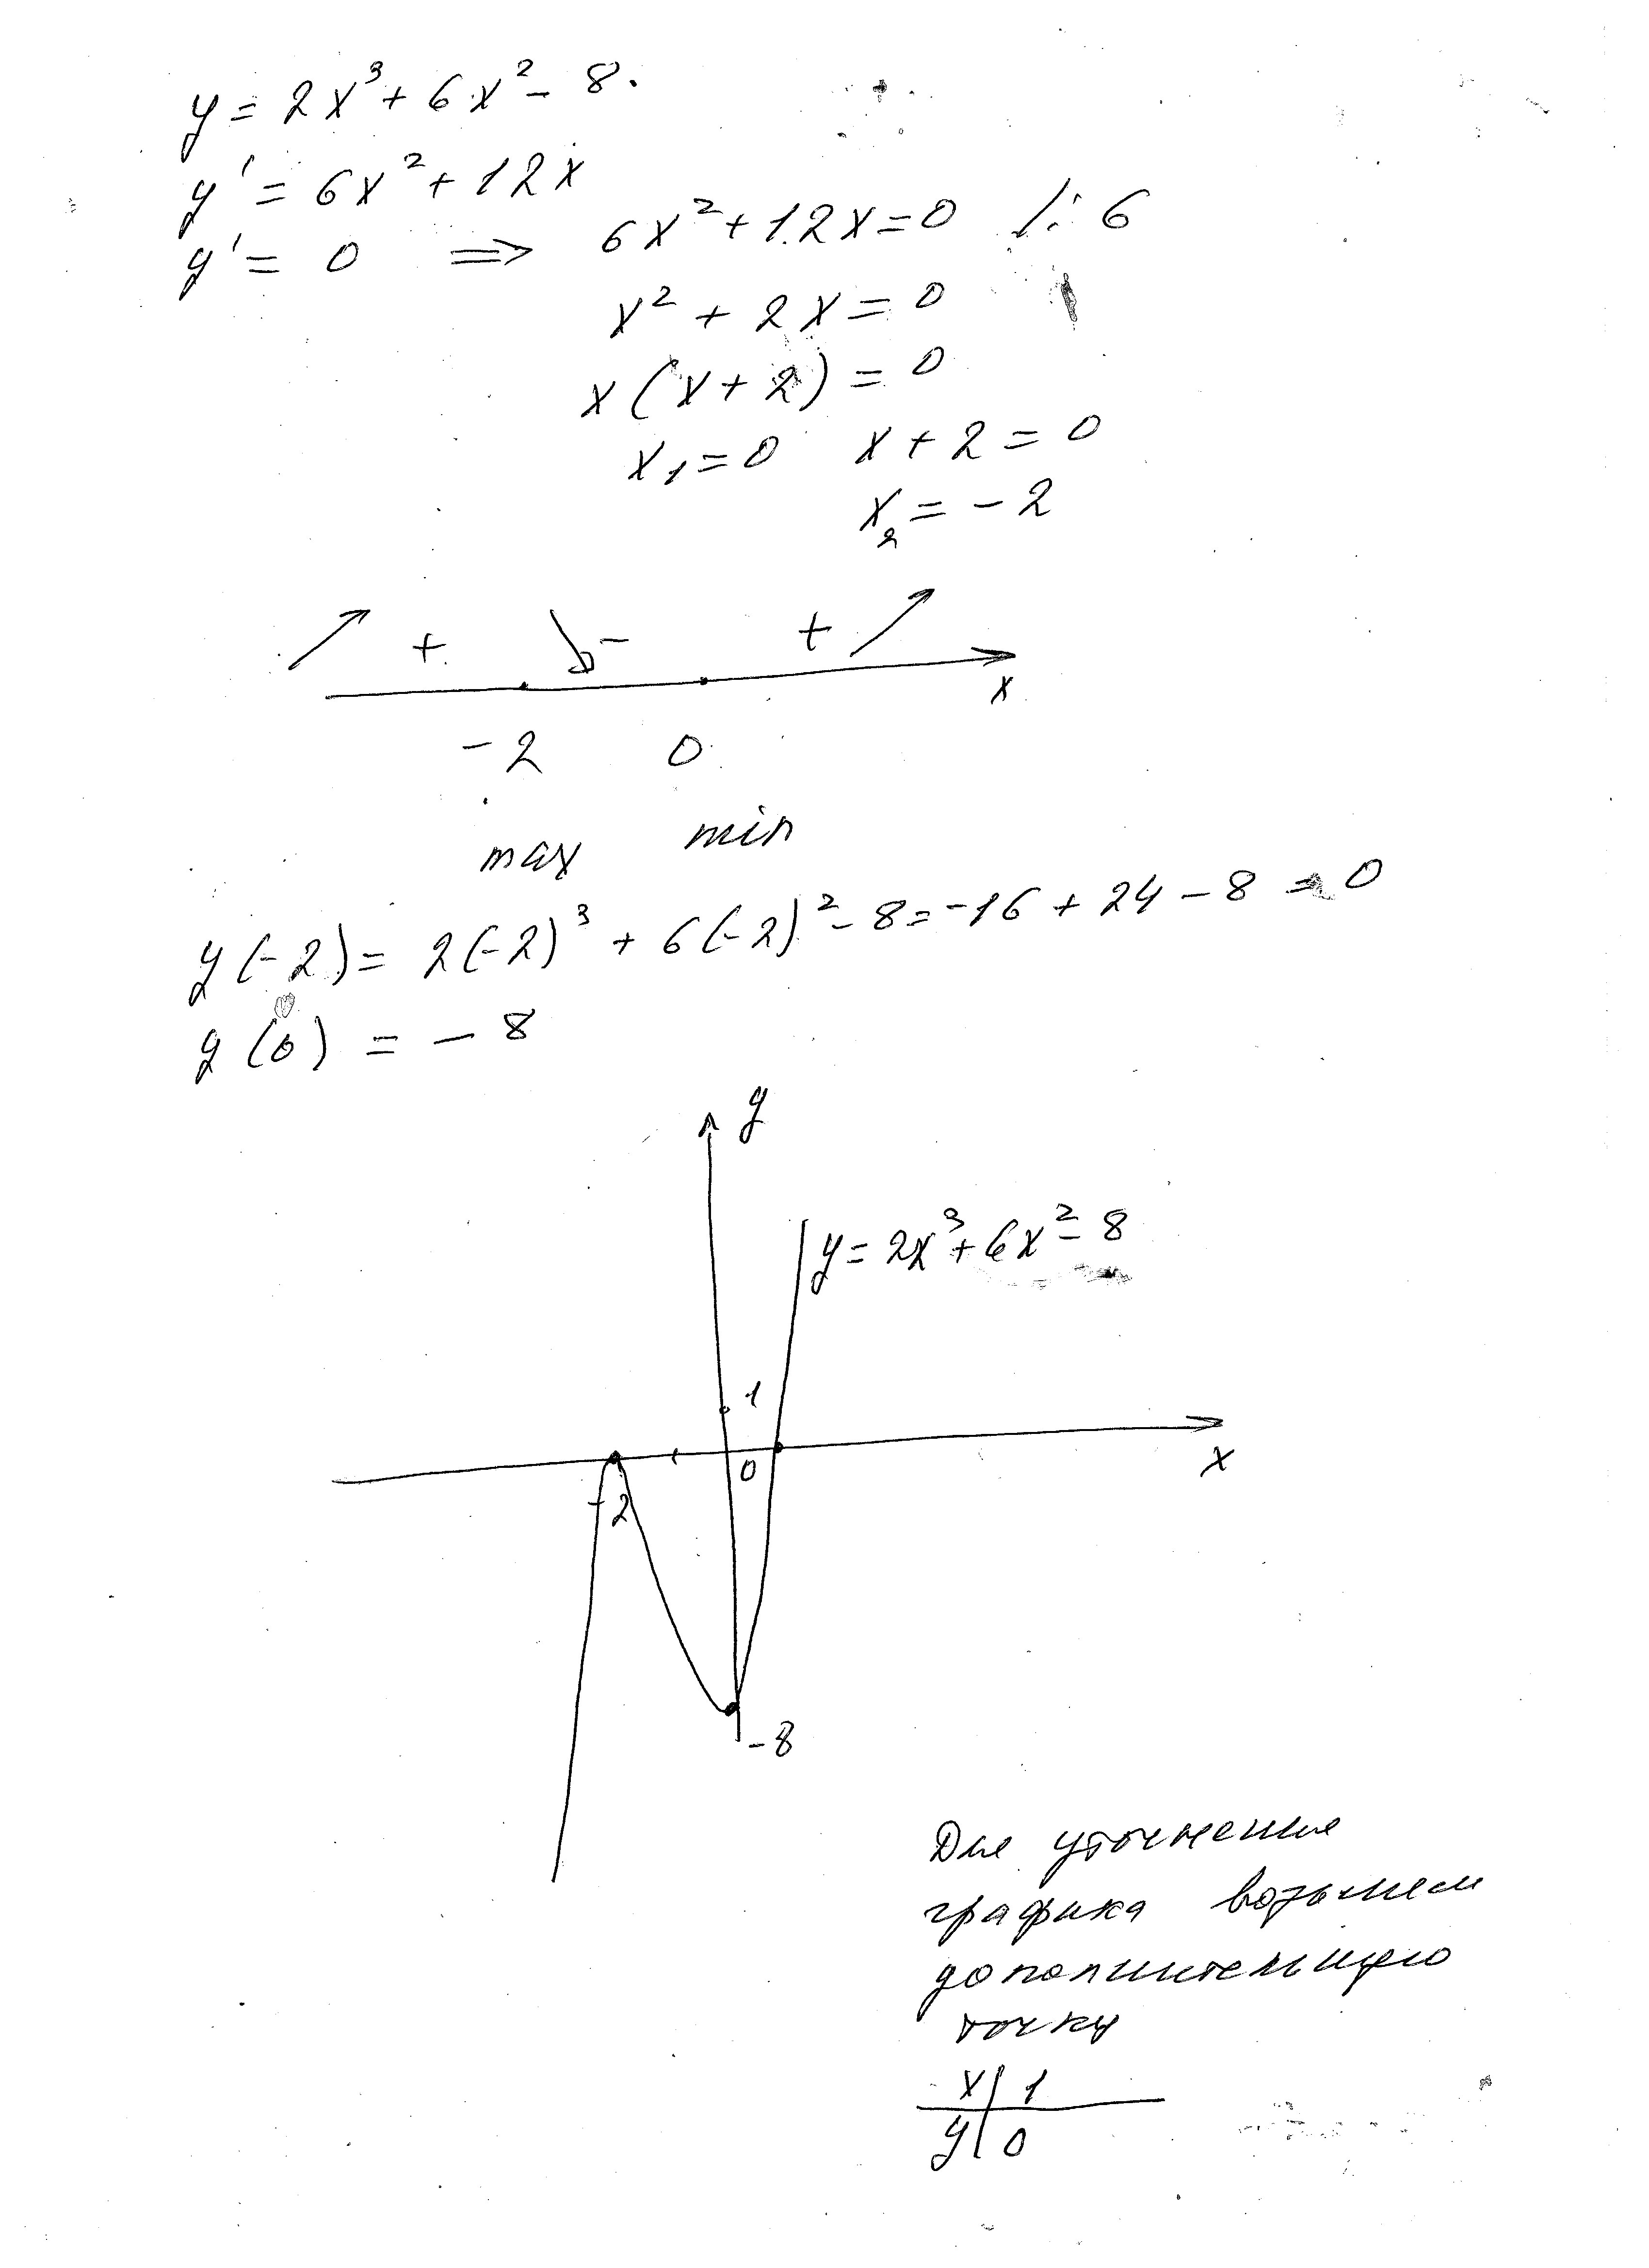 y = 2x³ + 6x² - 8.
y' = 6x² + 12x
y' = 0 ⇒ 6x² + 12x = 0 /: 6
x² + 2x = 0
x(x + 2) = 0
x₁ = 0 x + 2 = 0
x₂ = -2
+ - +
x
-2 0
max min
y(-2) = 2(-2)³ + 6(-2)² - 8 = -16 + 24 - 8 = 0
y(0) = -8
y
y = 2x³ + 6x² - 8
1
0 x
-2
-8
Для уточнения
графика возьмем
дополнительную
точку
x | 1
y | 0